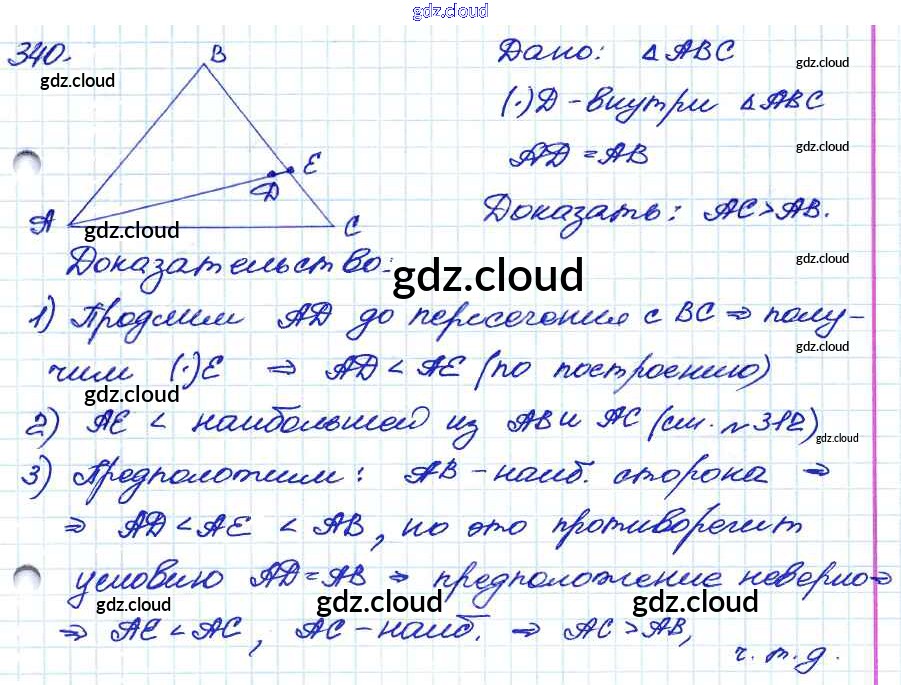 gdz.cloud
340.
gdz.cloud
B
E
D
A
C
gdz.cloud
Дано: △ABC
gdz.cloud
(·)D - внутри △ABC
AD = AB
gdz.cloud
Доказать: AC > AB.
gdz.cloud
Доказательство:
gdz.cloud
gdz.cloud
1) Продлим AD до пересечения с BC ⇒ полу-
gdz.cloud
чим (·)E ⇒ AD < AE (по построению)
gdz.cloud
2) AE < наибольшей из AB и AC (см. №312)
gdz.cloud
3) Предположим: AB - наиб. сторона ⇒
⇒ AD < AE < AB, но это противоречит
условию AD = AB ⇒ предположение неверно ⇒
gdz.cloud gdz.cloud gdz.cloud
⇒ AE < AC, AC - наиб. ⇒ AC > AB,
ч. т. д.